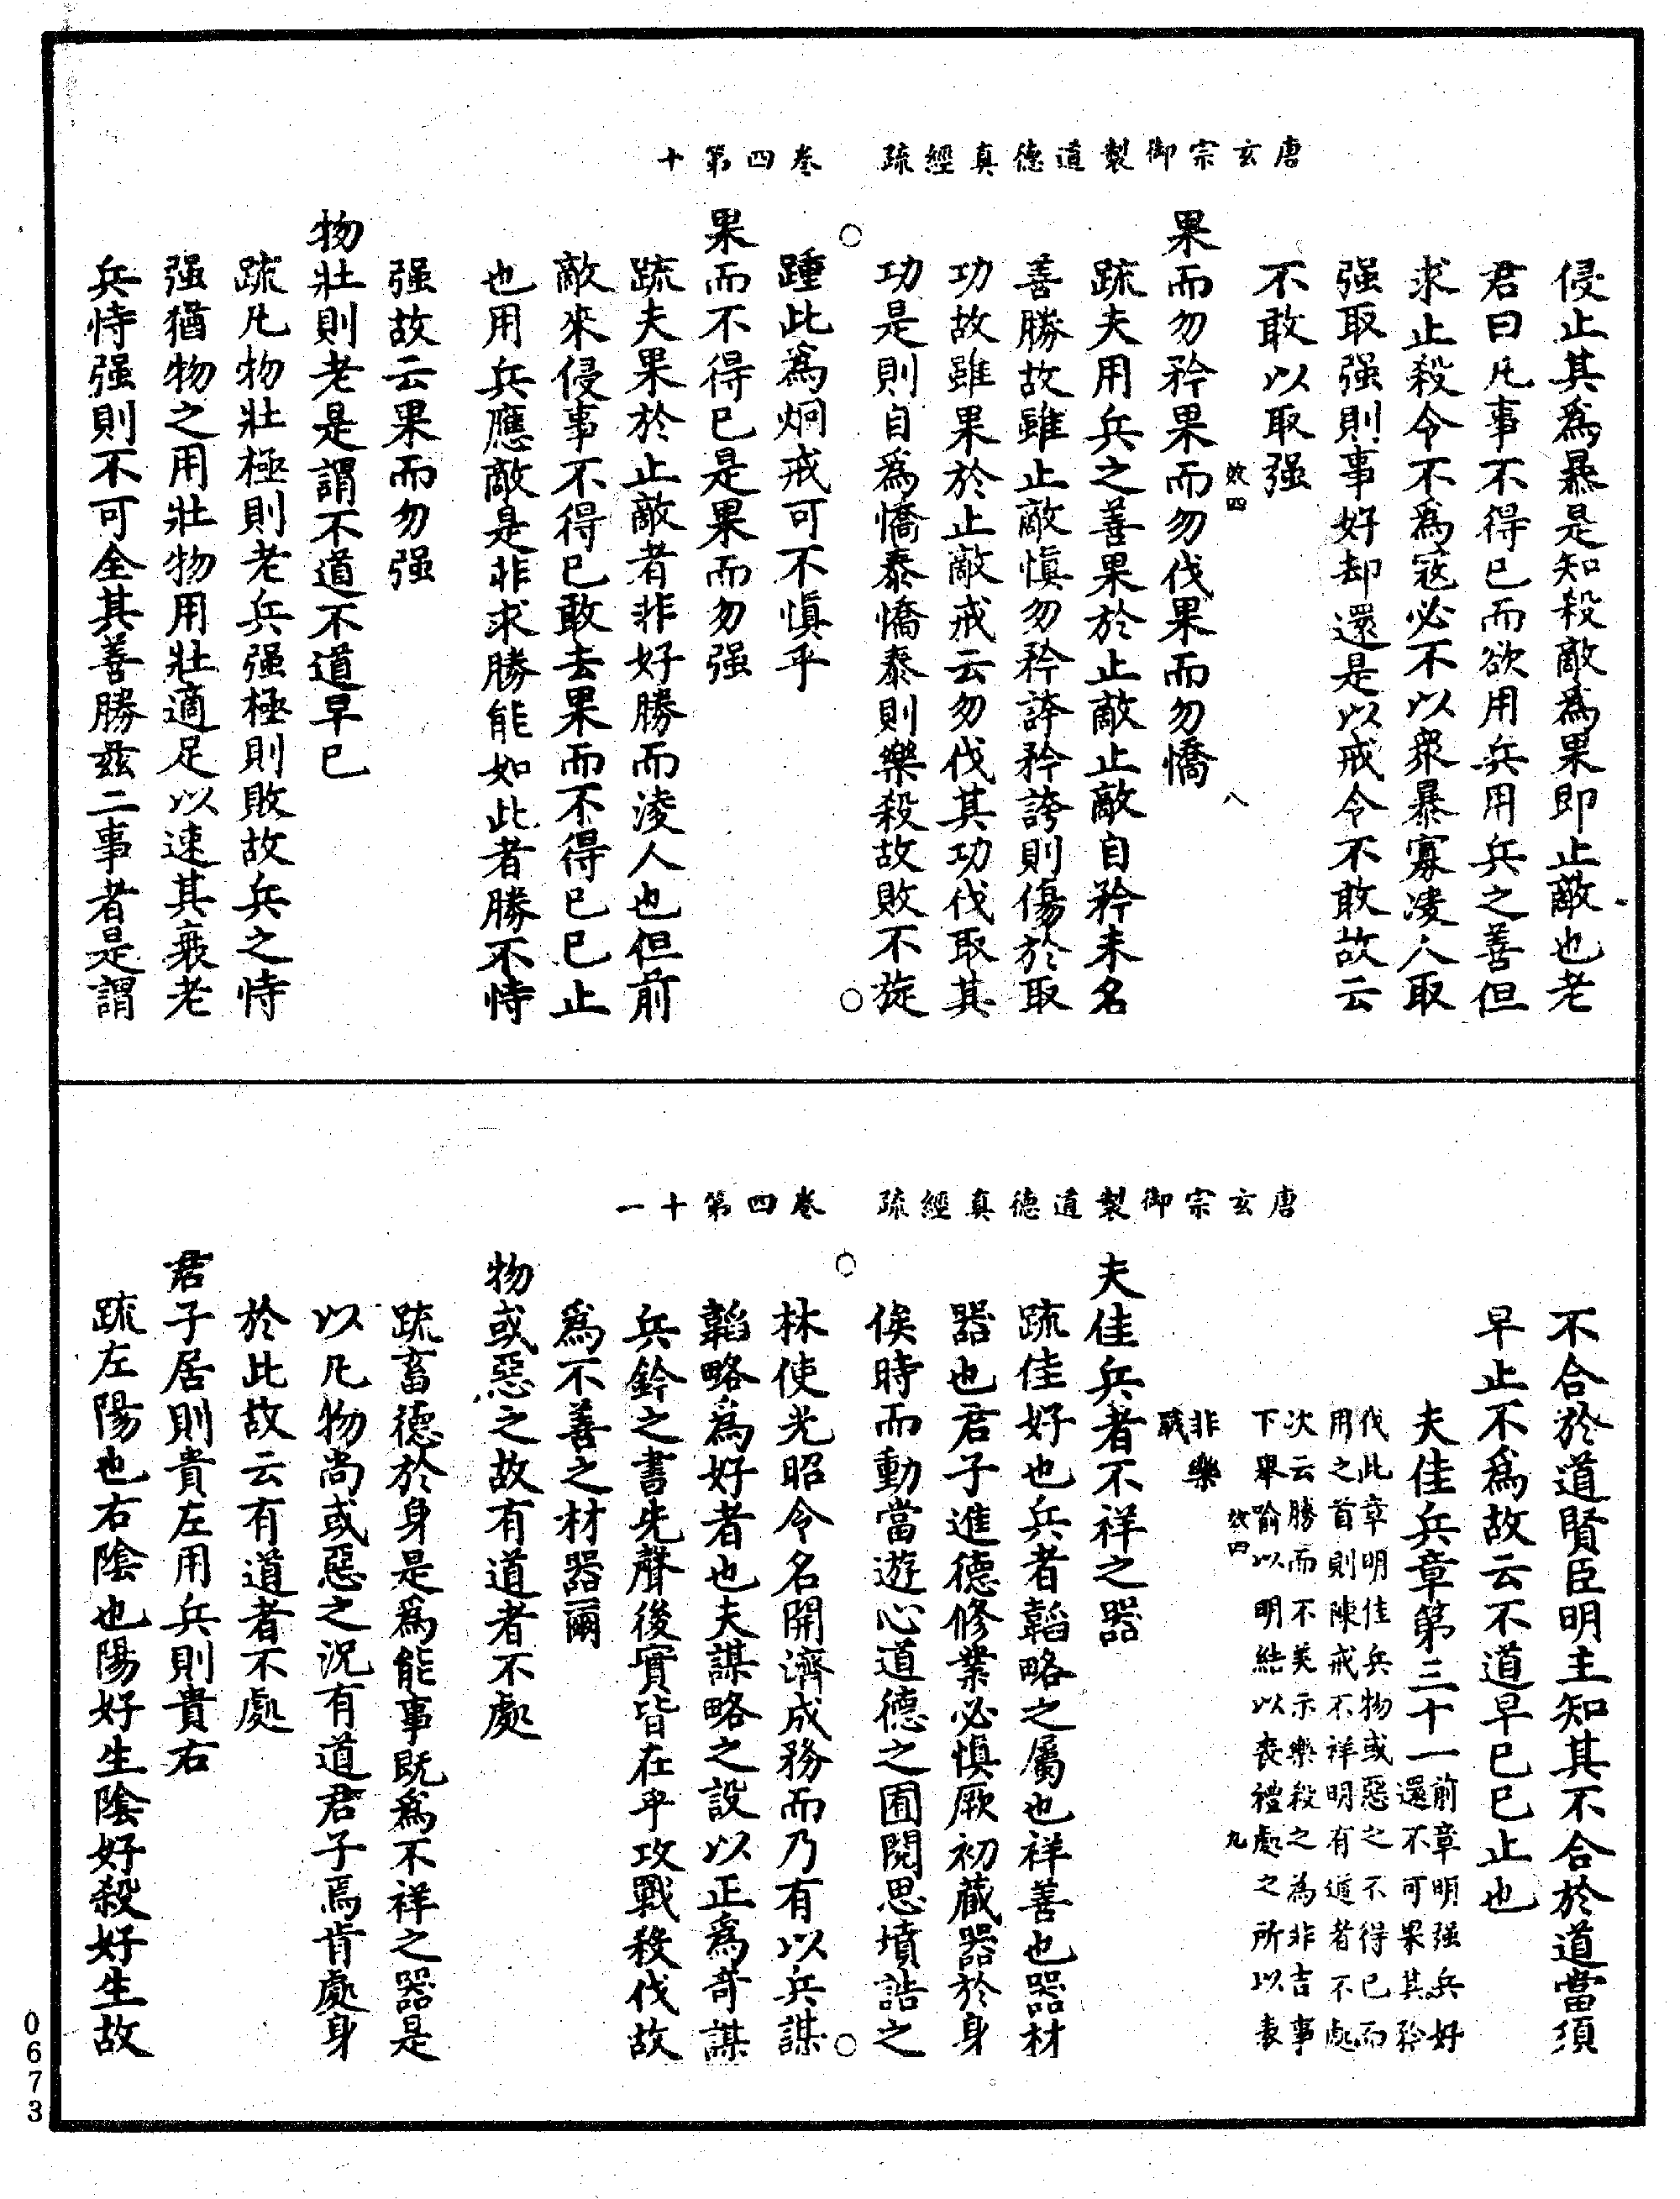 唐玄宗御製道德真經疏　卷四第十
侵止其爲暴是知殺敵爲果即止敵也老
君曰凡事不得已而欲用兵用兵之善但
求止殺令不爲寇必不以衆暴寡凌人取
强取强則事好却還是以戒令不敢故云
不敢以取强
效四　八
果而勿矜果而勿伐果而勿憍
疏夫用兵之善果於止敵止敵自矜未名
善勝故雖止敵慎勿矜誇矜誇則傷於取
功故雖果於止敵戒云勿伐其功伐取其
功是則自爲憍泰憍泰則樂殺故敗不旋
踵此爲炯戒可不慎乎
果而不得已是果而勿强
疏夫果於止敵者非好勝而淩人也但前
敵來侵事不得已敢去果而不得已已止
也用兵應敵是非求勝能如此者勝不恃
强故云果而勿强
物壯則老是謂不道不道早已
疏凡物壯極則老兵强極則敗故兵之恃
强猶物之用壯物用壯適足以速其衰老
兵恃强則不可全其善勝兹二事者是謂
唐玄宗御製道德真經疏　卷四第十一
不合於道賢臣明主知其不合於道當須
早止不爲故云不道早已已止也
夫佳兵章第三十一前章明强兵好
還不可果其矜
伐此章明佳兵物或惡之不得已而
用之首則陳戒不祥明有道者不處
次云勝而不美示樂殺之為非吉事
下舉喻以明結以喪禮處之所以表
效四　九
非樂
戰
夫佳兵者不祥之器
疏佳好也兵者韜略之屬也祥善也器材
器也君子進德修業必慎厥初蔵器於身
俟時而動當遊心道德之囿閱思墳誥之
林使光昭令名開濟成務而乃有以兵謀
韜略爲好者也夫謀略之設以正爲奇謀
兵鈐之書先聲後實皆在乎攻戰殺伐故
爲不善之材器爾
物或惡之故有道者不處
疏畜德於身是爲能事既爲不祥之器是
以凡物尚或惡之況有道君子焉肯處身
於此故云有道者不處
君子居則貴左用兵則貴右
疏左陽也右陰也陽好生陰好殺好生故
0673